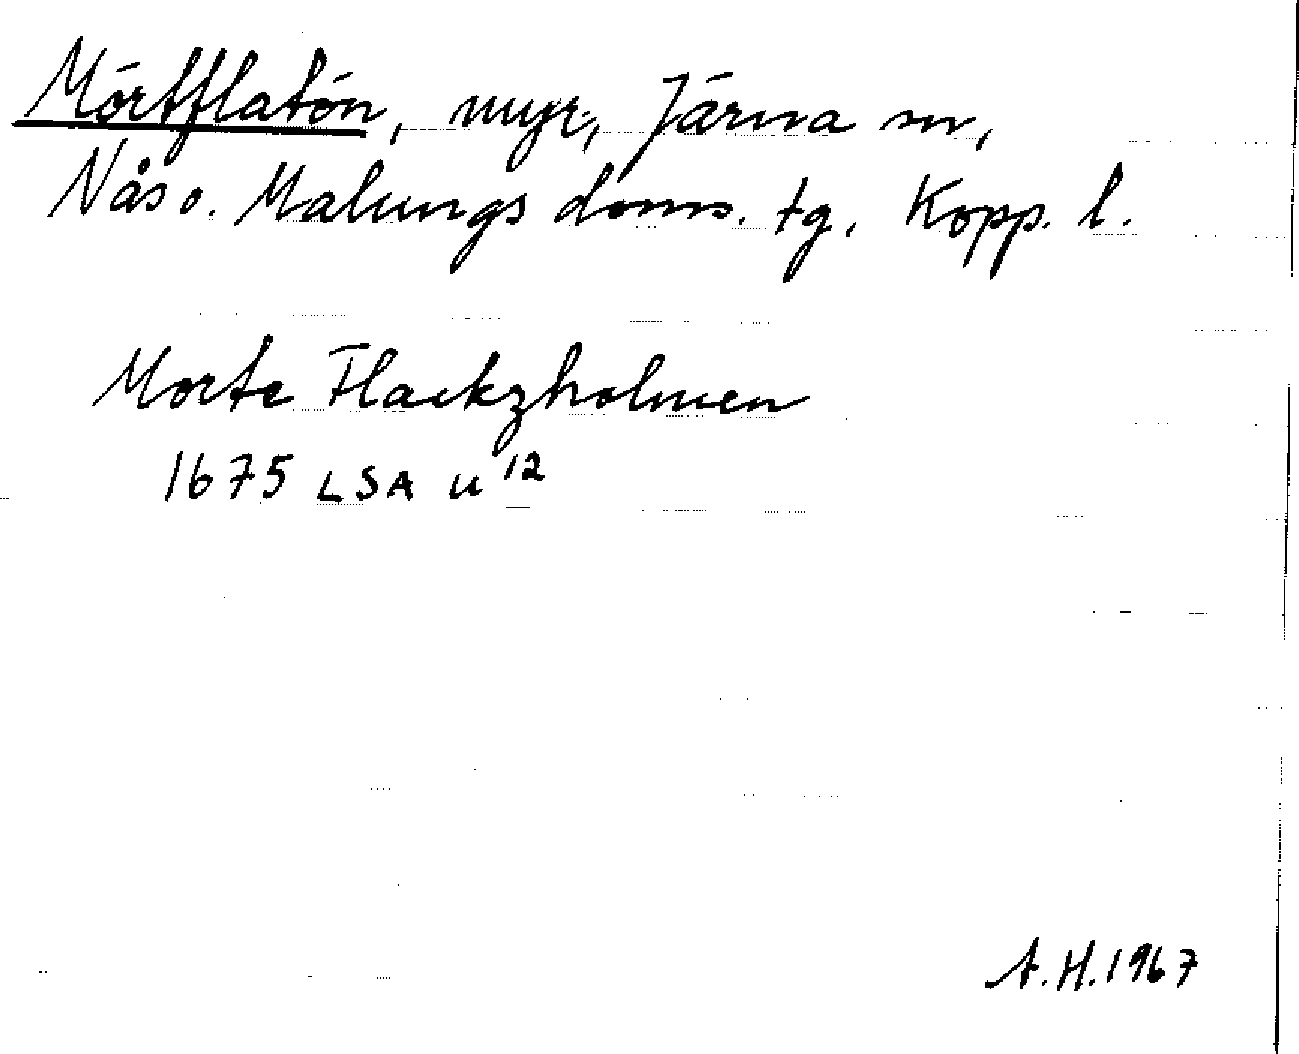 Mörtflatön, myr, Järna sn,
Nås o. Malungs doms. tg. Kopp. l.
Morte Flackzholmen
1675 LSA u 12
A.H. 1967